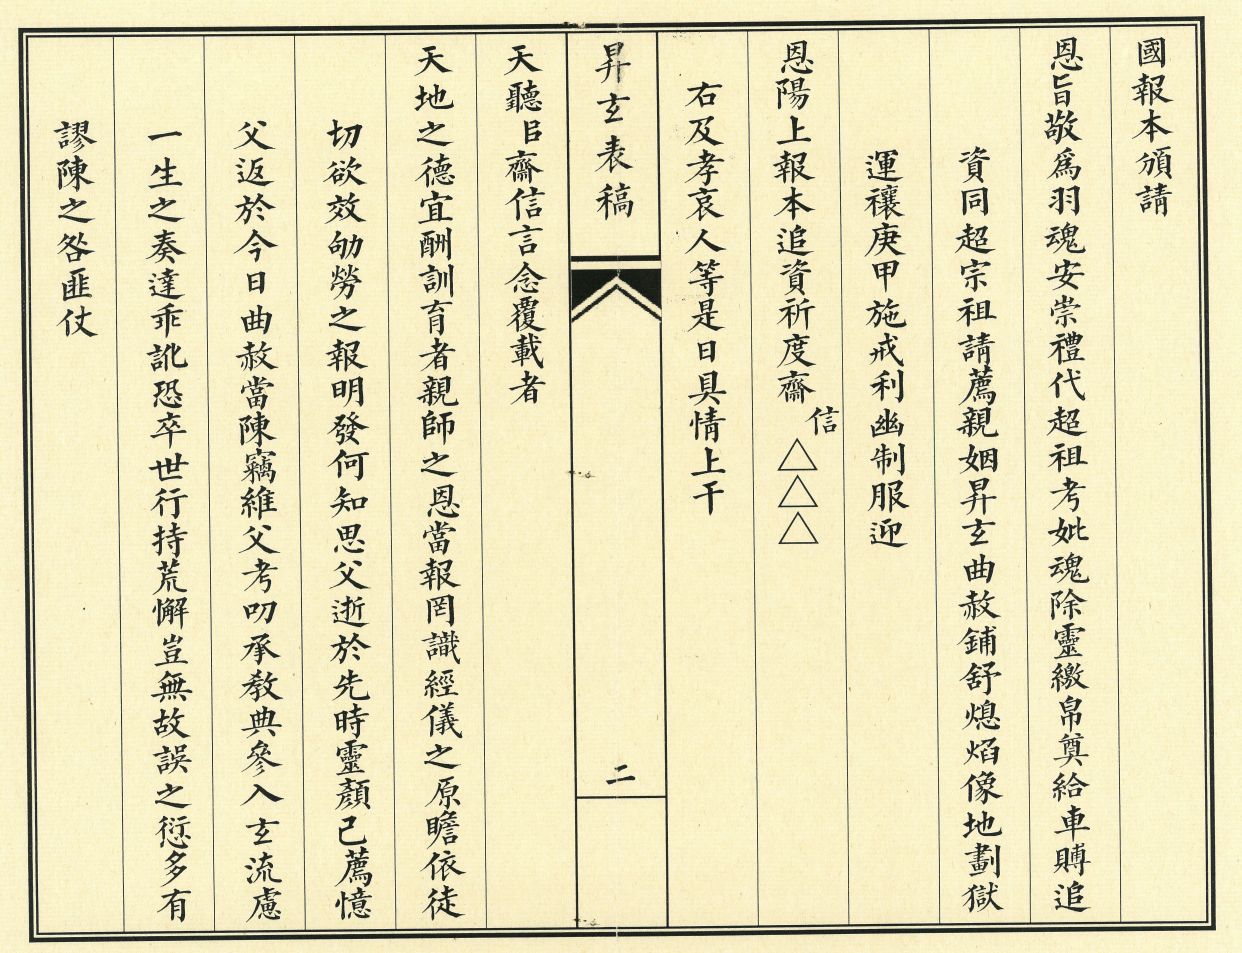 國報本頒請
恩旨敬爲羽魂安崇禮代超祖考妣魂除靈繳帛奠給車賻追
資同超宗祖請薦親姻昇玄曲赦鋪舒熄焰像地劃獄
運禳庚甲施戒利幽制服迎
恩陽上報本追資祈度齋信△△△
右及孝哀人等是日具情上干
昇玄表稿
二
天聽臣齋信言念覆載者
天地之德宜酬訓育者親師之恩當報罔識經儀之原瞻依徒
切欲效劬勞之報明發何知思父逝於先時靈顏已薦憶
父返於今日曲赦當陳竊維父考叨承教典參入玄流慮
一生之奏達乖訛恐卒世行持荒懈豈無故誤之愆多有
謬陳之咎匪仗